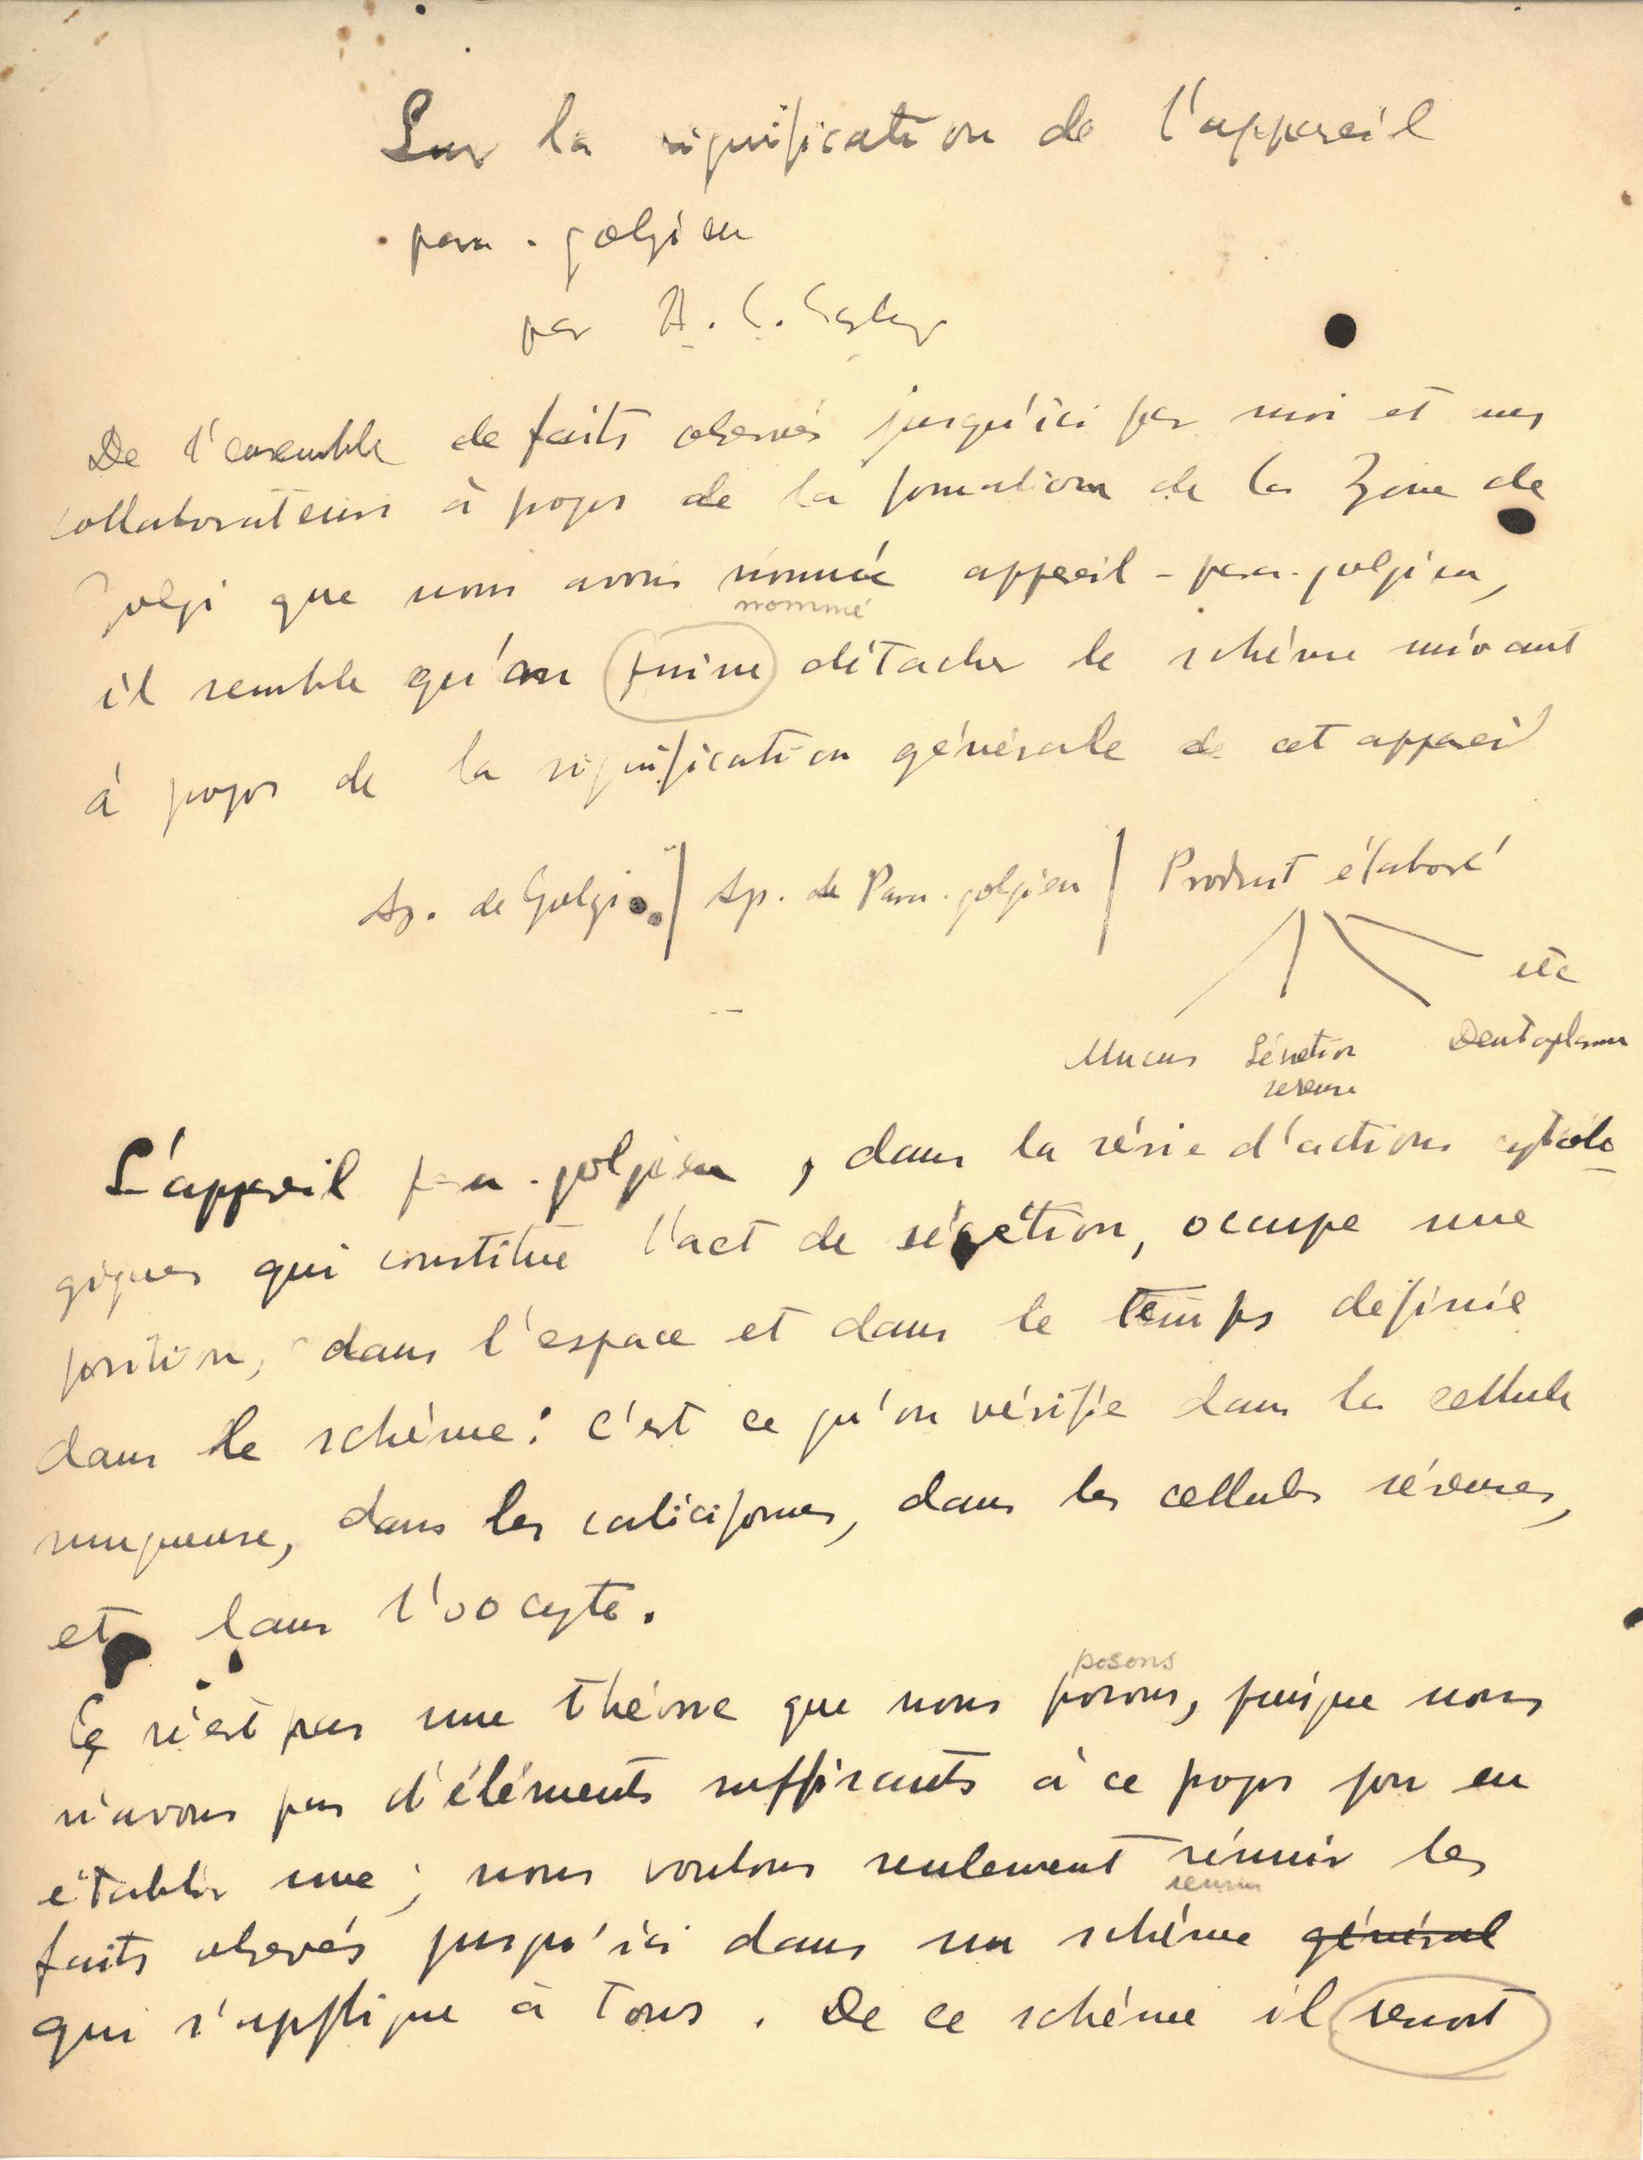 Sur la signification de l'appareil
para-golgien
par A. C.
De l'ensemble de faits observés jusqu'ici par moi et mes
collaborateurs à propos de la formation de la Zone de
Golgi que nous avons nommée appareil-para-golgien,
nommé
il semble qu'on puisse détacher le schème suivant
à propos de la signification générale de cet appareil
Ap. de Golgi / Ap. de Para-golgien / Produit élaboré
etc
Mucus Sécretion Deutoplasma
sereuse
L'appareil para-golgien, dans la série d'actions cytolo
giques qui constitue l'act de sécrétion, occupe une
position, dans l'espace et dans le temps définie
dans le schème: c'est ce qu'on vérifie dans la cellule
muqueuse, dans les caliciformes, dans les cellules séreuses,
et dans l'oocyte.
posons
Ce n'est pas une théorie que nous posons, puisque nous
n'avons pas d'éléments suffisants à ce propos pour en
établir une; nous voulons seulement réunir les
reunir
faits observés jusqu'ici dans un schème général
qui s'applique à tous. De ce schème il ressort